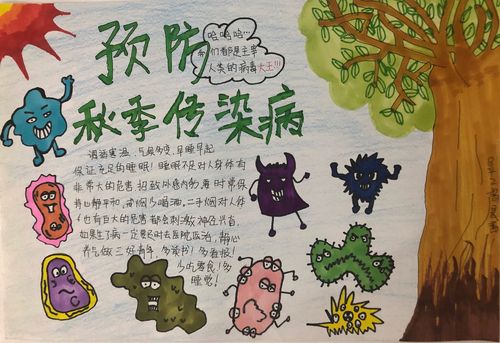 预防
哈哈哈…
我们都是主宰
人类的病毒大王!!!
秋季传染病
调适寒温，气候多变，早睡早起
保证充足的睡眠！睡眠不足对人身体有
非常大的危害
时常保
持心静平和，戒烟少喝酒，二手烟对人体
也有巨大的危害 都会刺激神经兴奋，
如果生了病一定要及时去医院医治，静心
养气做三好青年，多读书！多看报！
少吃零食！多
睡觉！